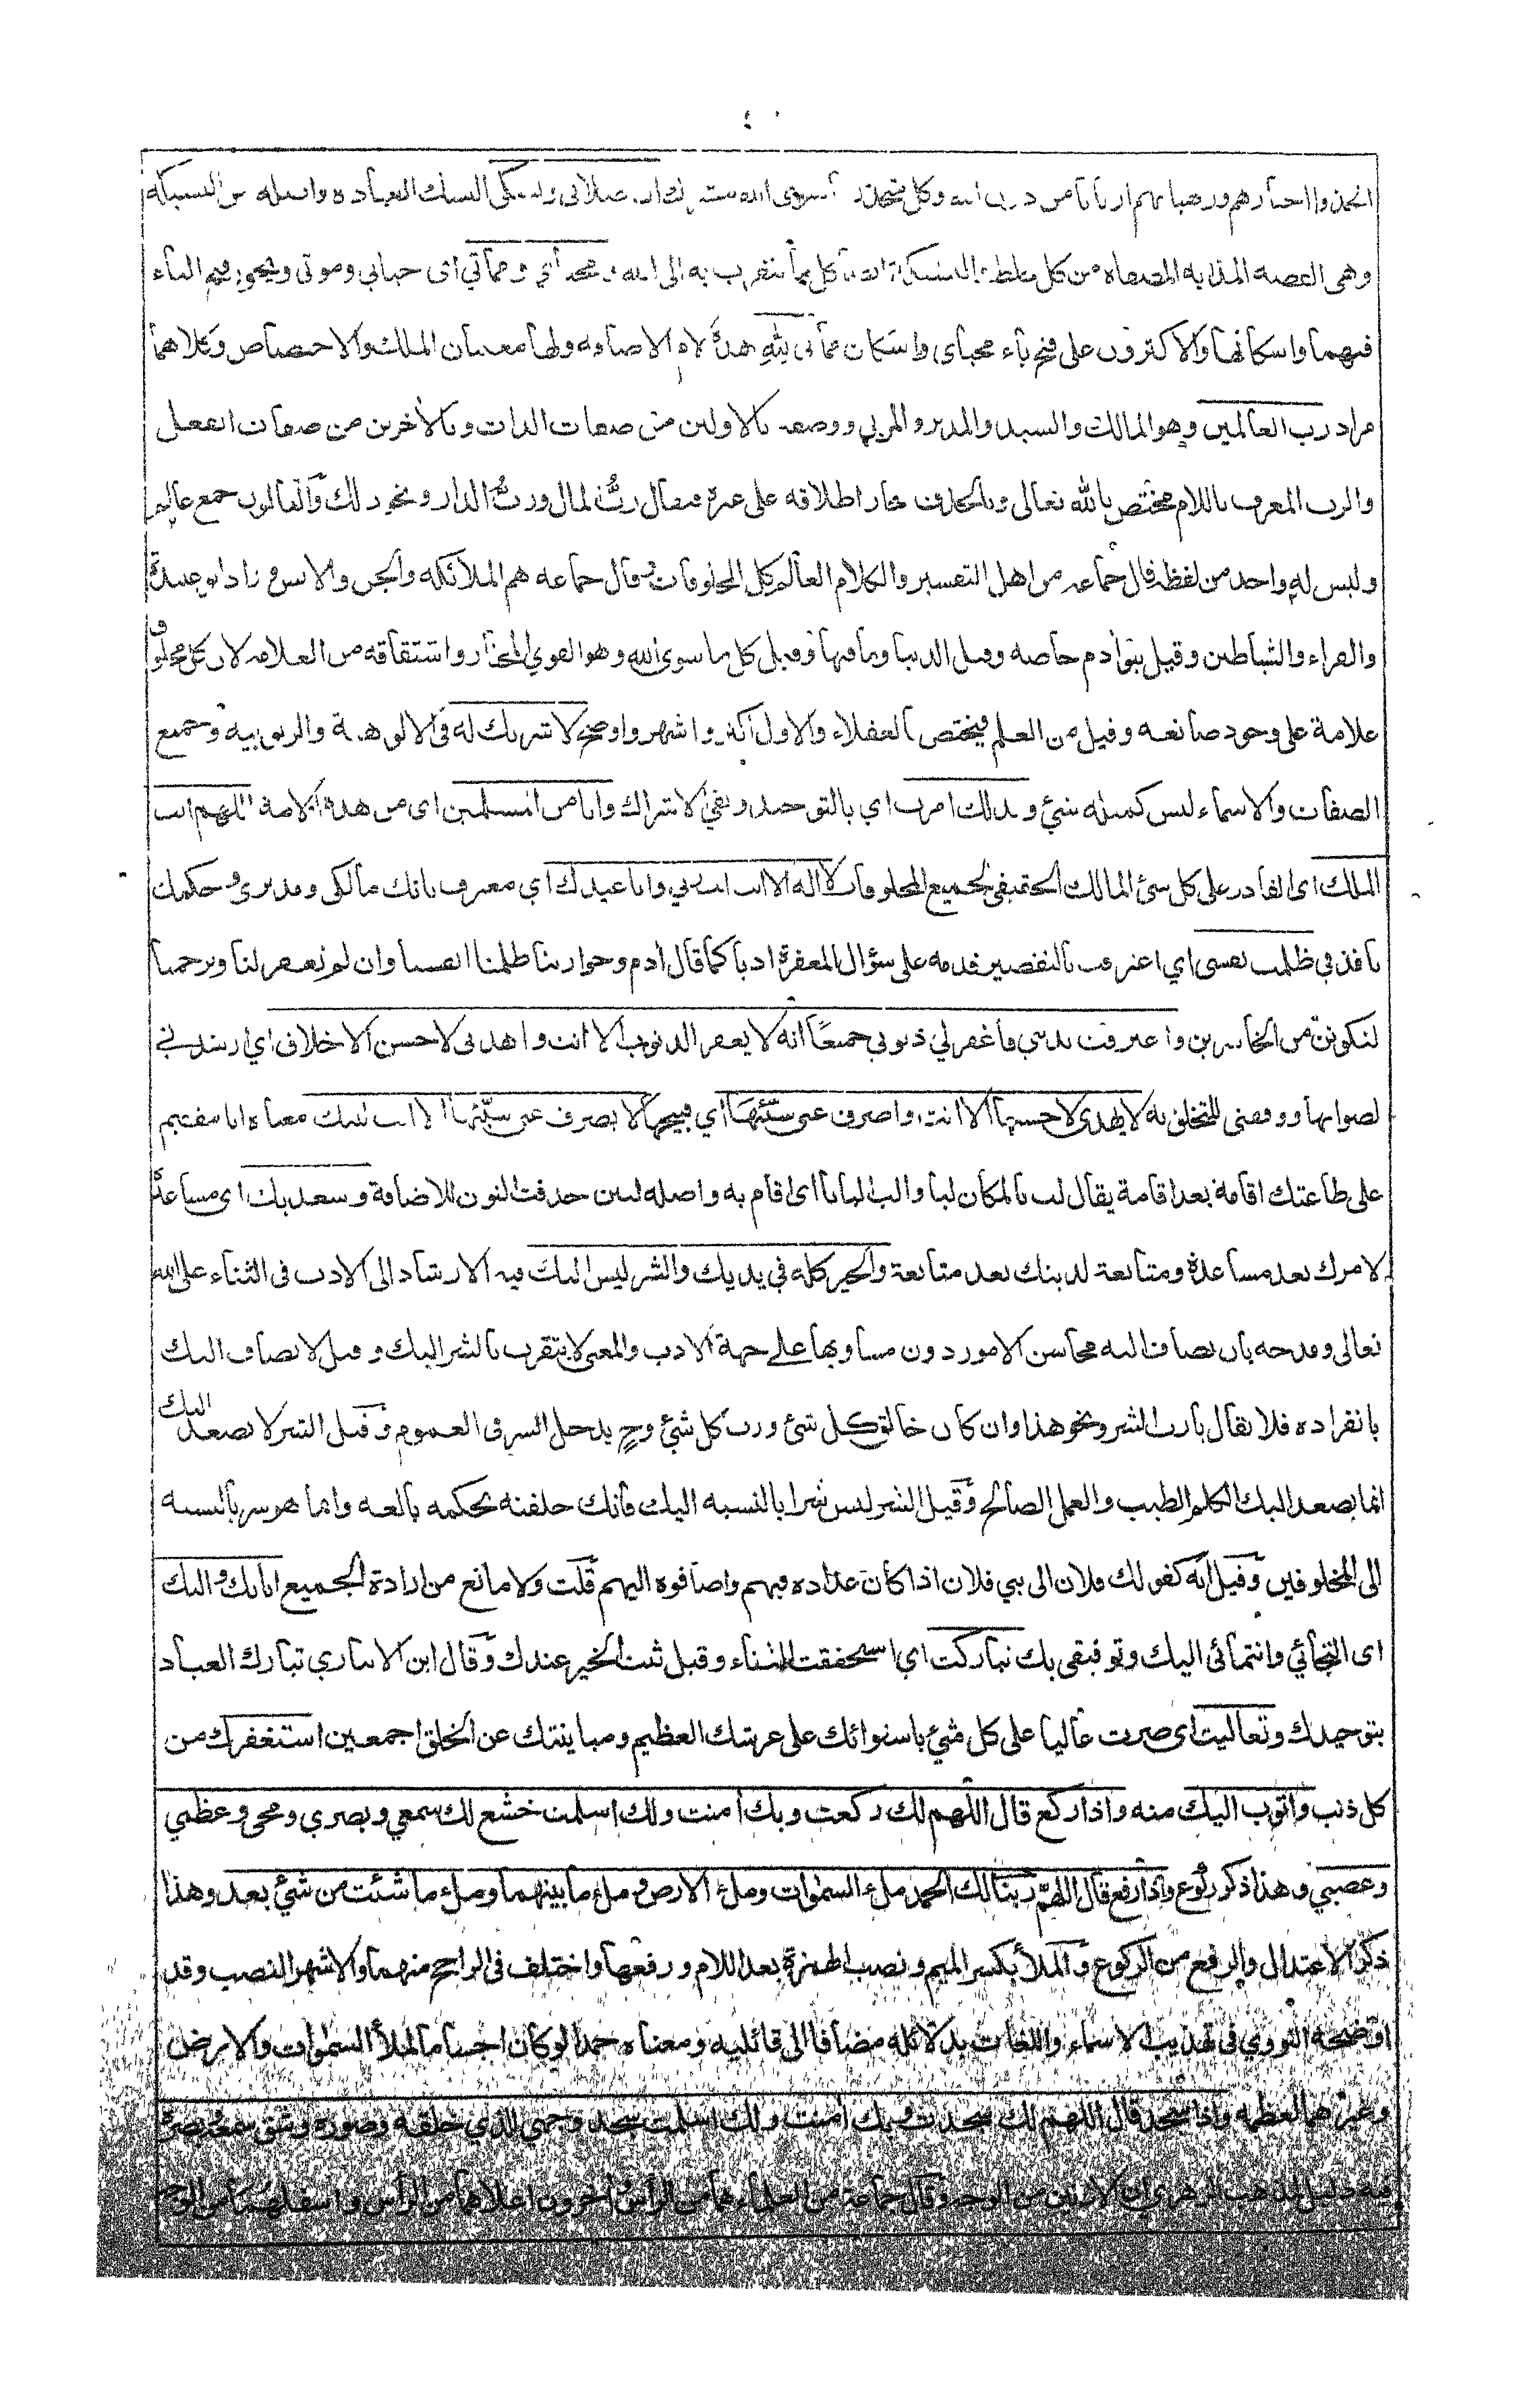 اتخذوا احبارهم ورهبانهم اربابا من دون الله وكل صلاتي ونسكي النسك العبادة واصله من النسيكة
وهي الفضة المذابة المصفاة من كل خلط والنسيكة ايضا كل ما يتقرب به الى الله ومحياي ومماتي اى حياتي وموتي ويجوز فتح الياء
فيهما واسكانها والاكثرون على فتح ياء محياى واسكان مماتى لله هذه لام الاضافه ولها معنيان الملك والاختصاص وكلاهما
مراد رب العالمين وهو المالك والسيد والمدبر والمربي ووصفه بالاولين من صفات الذات وبالأخرين من صفات الفعل
والرب المعرف باللام مختص بالله تعالى وبالحذف جاز اطلاقه على غيره فيقال ربُّ المال وربُّ الدار ونحو ذلك وَالعالمون جمع عالم
وليس له واحد من لفظه قال جماعه من اهل التفسير والكلام العالم كل المخلوقات وقال جماعه هم الملائكه والجن والانس وزاد ابو عبيدة
والفراء والشياطين وقيل بنو أدم خاصه وقيل الدنيا وما فيها وقيل كل ما سوى الله وهو القوي المختار واشتقاقه من العلامه لان كل مخلوق
علامة على وجود صانعه وقيل من العلم فيختص بالعقلاء والاول اكثر واشهر واوضح لا شريك له في الالوهية والربوبية وجميع
الصفات والاسماء ليس كمثله شئ وبذلك امرت اي بالتوحيد ونفي الاشراك وانا من المسلمين اى من هذه الامة اللهم انت
الملك اى القادر على كل شئ المالك الحقيقي لجميع المخلوقات لا اله الا انت انت ربي وانا عبدك اي معترف بانك مالكى ومدبرى وحكمك
نافذ في ظلمت نفسى اي اعترفت بالتقصير قدمه على سؤال المغفرة ادبا كما قال أدم وحوا ربنا ظلمنا انفسنا وان لم تغفر لنا وترحمنا
لنكونن من الخاسرين واعترفت بذنبي فاغفر لي ذنوبي جميعًا انه لا يغفر الذنوب الا انت واهدنى لاحسن الاخلاق اي ارشدني
لصوابها ووفقنى للتخلق به لا يهدى لاحسنها الا انت واصرف عنى سيّئها اي قبيحها لا يصرف عنى سيّئها الا انت لبيك معناه انا مقيم
على طاعتك اقامة بعد اقامة يقال لب بالمكان لبا والب البابا اى اقام به واصله لبين حذفت النون للاضافة وسعديك اى مساعدة
لامرك بعد مساعدة ومتابعة لدينك بعد متابعة والخير كله في يديك والشر ليس اليك فيه الارشاد الى الادب فى الثناء على الله
تعالى ومدحه بان يضاف اليه محاسن الامور دون مساويها على جهة الادب والمعنى لا يتقرب بالشر اليك وقيل لا يضاف اليك
بانفراده فلا يقال يا رب الشر ونحو هذا وان كان خالق كل شئ ورب كل شئ وح يدخل الشر فى العموم وقيل الشر لا يصعد اليك
انما يصعد اليك الكلم الطيب والعمل الصالح وقيل الشر ليس شرا بالنسبه اليك فانك خلقته بحكمه بالغه وانما هو شر بالنسبه
الى المخلوقين وقيل انه كقولك فلان الى بني فلان اذا كان عداده فيهم واضافوه اليهم قلت ولا مانع من ارادة الجميع انا بك واليك
اى التجائي وانتمائى اليك وتوفيقى بك تباركت اي استحققت الثناء وقيل ثبت الخير عندك وقال ابن الانباري تبارك العباد
بتوحيدك وتعاليت اى صرت عاليا على كل شئ باستوائك على عرشك العظيم ومباينتك عن الخلق اجمعين استغفرك من
كل ذنب واتوب اليك منه واذا ركع قال اللهم لك ركعت وبك أمنت ولك اسلمت خشع لك سمعي وبصري ومخى وعظمي
وعصبي وهذا ذكر ركوع واذا رفع قال اللهم ربنا لك الحمد ملء السموات وملء الارض وملء ما بينهما وملء ما شئت من شئ بعد وهذا
ذكر الاعتدال والرفع من الركوع والملأ بكسر الميم ونصب الهمزة بعد اللام ورفعها واختلف فى الراجح منهما والاشهر النصب وقد
اوضحه النووي فى تهذيب الاسماء واللغات بدلائله مضافا الى قائليه ومعناه حمدا لو كان اجساما لملأ السموات والارض
وغيرهما لعظمه واذا سجد قال اللهم لك سجدت وبك أمنت ولك اسلمت سجد وجهي للذي خلقه وصوره وشق سمعه وبصره
فيه دليل لمذهب الزهري ان الاذنين من الوجه وقال جماعة من العلماء هما من الرأس أخرون اعلاهما من الرأس واسفلهما من الوجه